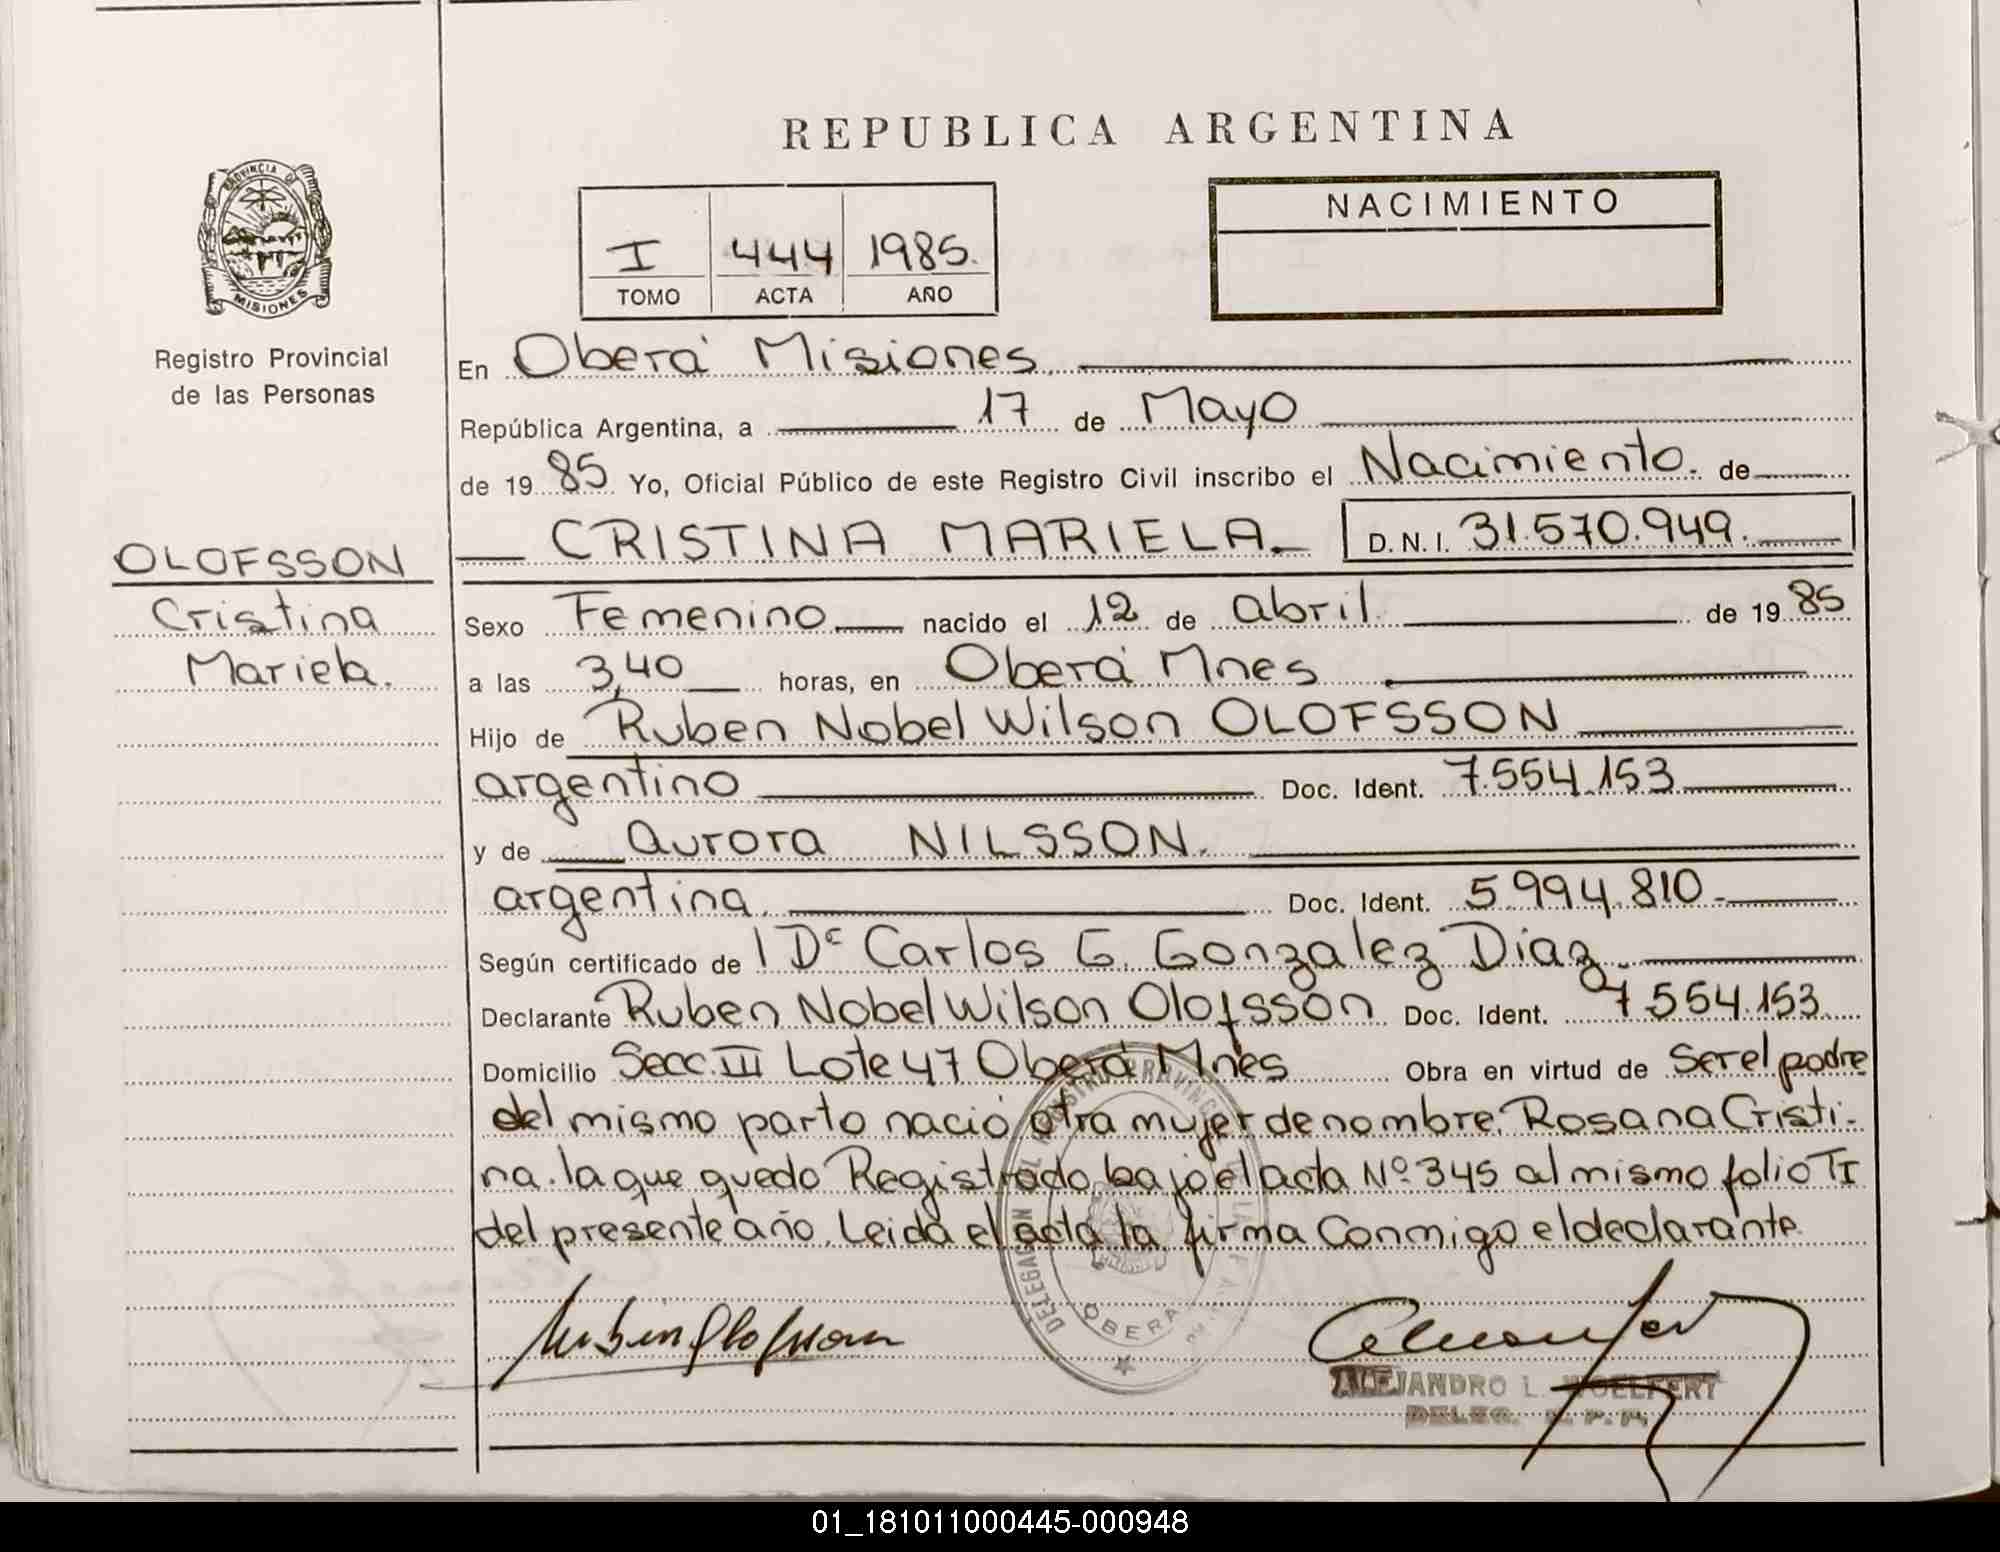 REPUBLICA ARGENTINA
PROVINCIA DE
MISIONES
Registro Provincial
de las Personas
I 444 1985.
TOMO ACTA AÑO
NACIMIENTO
En Oberá Misiones.
República Argentina, a 17 de Mayo
de 19 85 Yo, Oficial Público de este Registro Civil inscribo el Nacimiento. de
CRISTINA MARIELA. D.N.I. 31.570.949.
OLOFSSON
Cristina
Mariela.
Sexo Femenino nacido el 12 de abril de 19 85
a las 3,40 horas, en Oberá Mnes
Hijo de Ruben Nobel Wilson OLOFSSON
argentino Doc. Ident. 7.554.153
y de Aurora NILSSON.
argentina. Doc. Ident. 5.994.810-
Según certificado de Carlos G. Gonzalez Diaz.
Declarante Ruben Nobel Wilson Olofsson Doc. Ident. 7.554.153
Domicilio Secc. III Lote 47 Oberá Mnes Obra en virtud de Ser el padre
del mismo parto nació otra mujer de nombre. Rosana Cristi-
na. la que quedo Registrado bajo el acta Nº 345 al mismo folio TI
del presente año. Leida el acta la firma Conmigo el declarante.
Ruben Olofsson
DELEGACION DEL REGISTRO PROVINCIAL
OBERA
ALEJANDRO L. WOELFERT
DELEG. R. P. P.
01_181011000445-000948